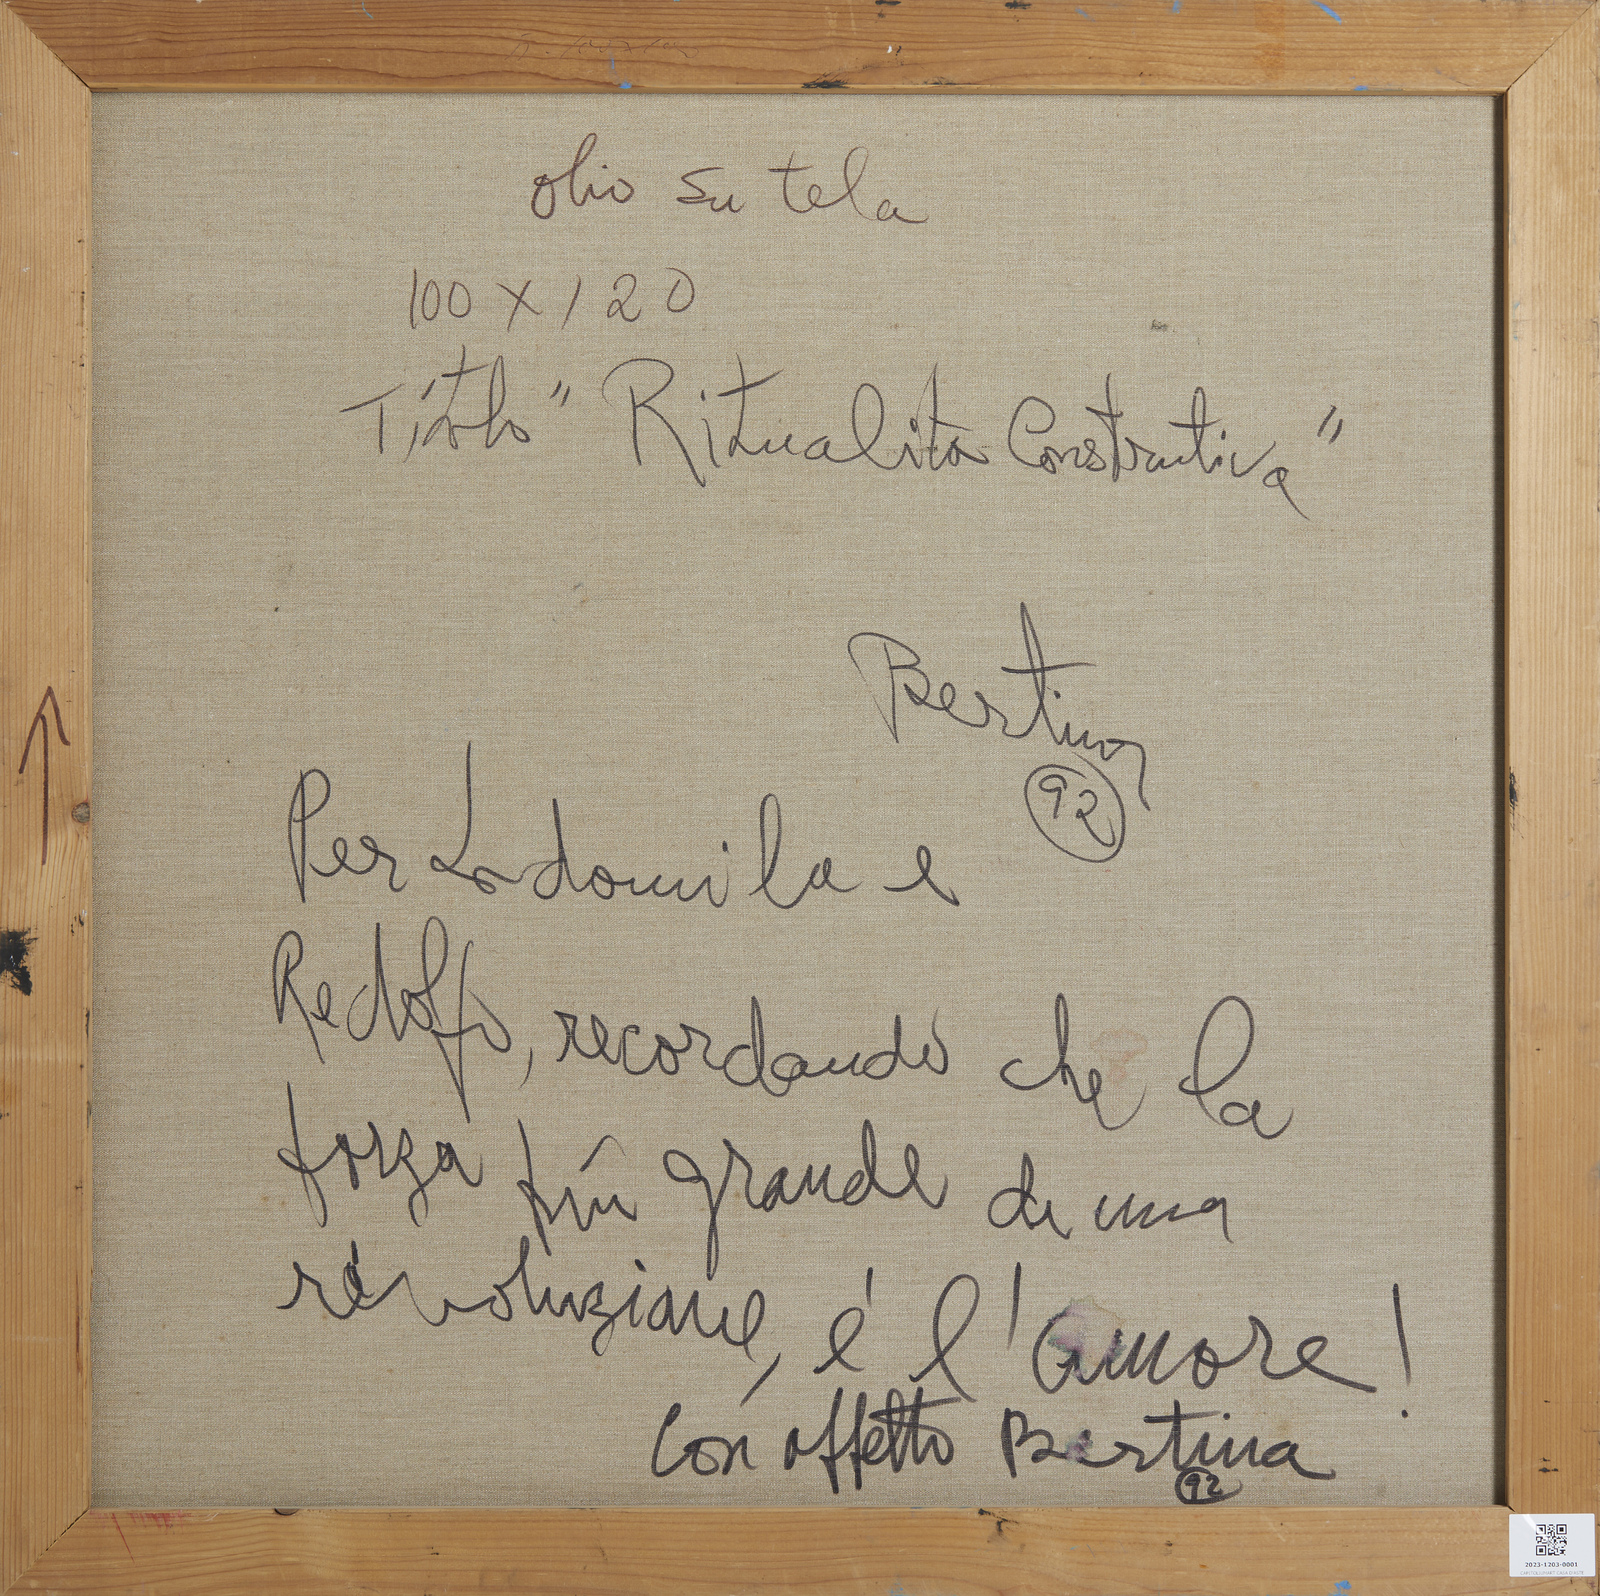 olio su tela
100 x 120
Titolo "Ritualita Constructiva"
Bertina
92
Per Lodomila e
Redolfo, recordando che la
forza più grande de una
révoluzione, é l'amore!
Con affetto Bertina
92
2023-1203-0001